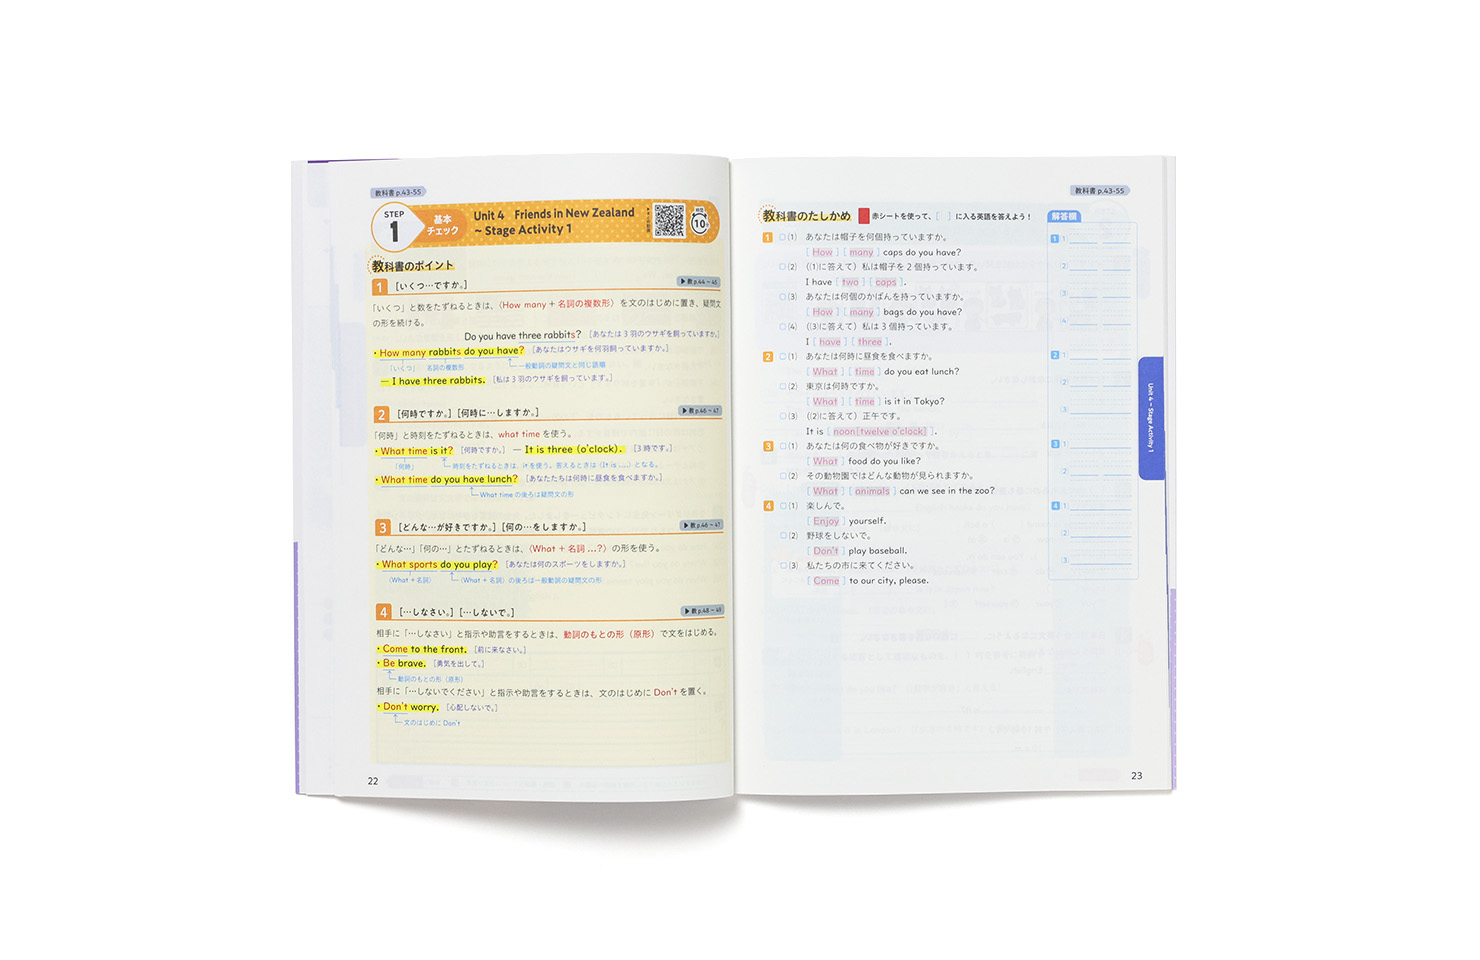 教科書 p.43-55
STEP 1
基本チェック
Unit 4 Friends in New Zealand
~ Stage Activity 1
時間
10分
教科書のポイント
1 [いくつ…ですか。]
▶教 p.44~45
「いくつ」と数をたずねるときは、〈How many + 名詞の複数形〉を文のはじめに置き、疑問文
の形を続ける。
Do you have three rabbits? [あなたは3羽のウサギを飼っていますか。]
・How many rabbits do you have? [あなたはウサギを何羽飼っていますか。]
「いくつ」 名詞の複数形 一般動詞の疑問文と同じ語順
— I have three rabbits. [私は3羽のウサギを飼っています。]
2 [何時ですか。] [何時に…しますか。]
▶教 p.46~47
「何時」と時刻をたずねるときは、what time を使う。
・What time is it? [何時ですか。] — It is three (o'clock). [3時です。]
「何時」 時刻をたずねるときは、itを使う。答えるときは〈It is ....〉となる。
・What time do you have lunch? [あなたたちは何時に昼食を食べますか。]
What time の後ろは疑問文の形
3 [どんな…が好きですか。] [何の…をしますか。]
▶教 p.46~47
「どんな…」「何の…」とたずねるときは、〈What + 名詞 ...?〉の形を使う。
・What sports do you play? [あなたは何のスポーツをしますか。]
〈What + 名詞〉 〈What + 名詞〉の後ろは一般動詞の疑問文の形
4 […しなさい。] […しないで。]
▶教 p.48~49
相手に「…しなさい」と指示や助言をするときは、動詞のもとの形（原形）で文をはじめる。
・Come to the front. [前に来なさい。]
・Be brave. [勇気を出して。]
動詞のもとの形（原形）
相手に「…しないでください」と指示や助言をするときは、文のはじめに Don't を置く。
・Don't worry. [心配しないで。]
文のはじめに Don't
22
教科書 p.43-55
教科書のたしかめ 赤シートを使って、[ ]に入る英語を答えよう！
解答欄
1 □(1) あなたは帽子を何個持っていますか。
[ How ] [ many ] caps do you have?
□(2) （(1)に答えて）私は帽子を2個持っています。
I have [ two ] [ caps ].
□(3) あなたは何個のかばんを持っていますか。
[ How ] [ many ] bags do you have?
□(4) （(3)に答えて）私は3個持っています。
I [ have ] [ three ].
2 □(1) あなたは何時に昼食を食べますか。
[ What ] [ time ] do you eat lunch?
□(2) 東京は何時ですか。
[ What ] [ time ] is it in Tokyo?
□(3) （(2)に答えて）正午です。
It is [ noon[twelve o'clock] ].
3 □(1) あなたは何の食べ物が好きですか。
[ What ] food do you like?
□(2) その動物園ではどんな動物が見られますか。
[ What ] [ animals ] can we see in the zoo?
4 □(1) 楽しんで。
[ Enjoy ] yourself.
□(2) 野球をしないで。
[ Don't ] play baseball.
□(3) 私たちの市に来てください。
[ Come ] to our city, please.
1 (1)
(2)
(3)
(4)
2 (1)
(2)
(3)
3 (1)
(2)
4 (1)
(2)
(3)
Unit 4 ~ Stage Activity 1
23